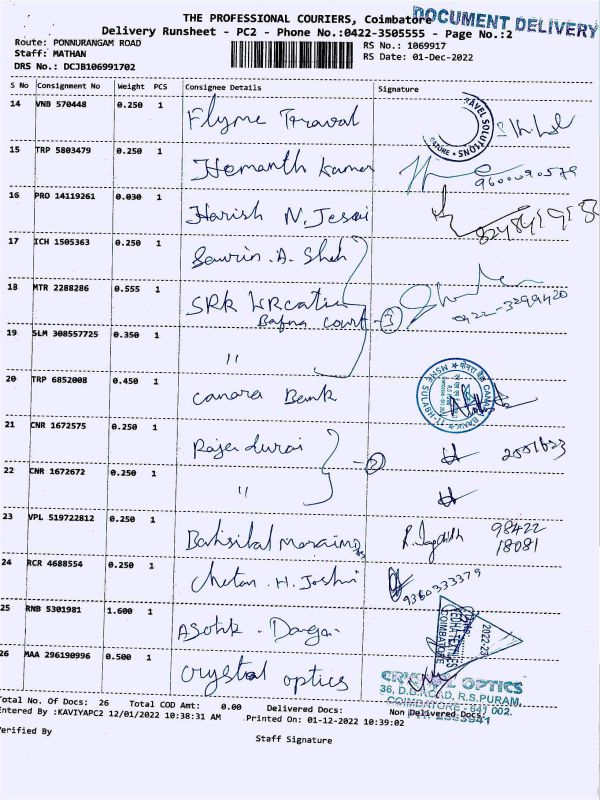 THE PROFESSIONAL COURIERS, Coimbatore
DOCUMENT DELIVERY
Delivery Runsheet - PC2 - Phone No.:0422-3505555 - Page No.:2
Route: PONNURANGAM ROAD
RS No.: 1069917
Staff: MATHAN
RS Date: 01-Dec-2022
DRS No.: DCJB106991702
S No Consignment No Weight PCS Consignee Details Signature
14 VNB 570448 0.250 1 Flyme Travel
15 TRP 5803479 0.250 1 Hemanth Kumar
16 PRO 14119261 0.030 1 Harish N. Jesai
17 ICH 1505363 0.250 1 Saurin . A. Shah
18 MTR 2288286 0.555 1 SRK
Bafna Court - 3
0422-3299420
19 SLM 308557725 0.350 1 "
20 TRP 6852008 0.450 1 Canara Bank
21 CNR 1672575 0.250 1 Rajadurai
- 2
22 CNR 1672672 0.250 1 "
23 VPL 519722812 0.250 1
98422
18081
24 RCR 4688554 0.250 1 Chetan . H. Joshi
9360333379
25 RNB 5301981 1.600 1 Asohk . Darga
COIMBATORE
2022-23
26 MAA 296190996 0.500 1 Crystal optics
OPTICS
36, D.B. ROAD, R.S.PURAM,
COIMBATORE - 641 002.
Total No. Of Docs: 26 Total COD Amt: 0.00 Delivered Docs: Non Delivered Docs:
Entered By :KAVIYAPC2 12/01/2022 10:38:31 AM Printed On: 01-12-2022 10:39:02
Verified By
Staff Signature